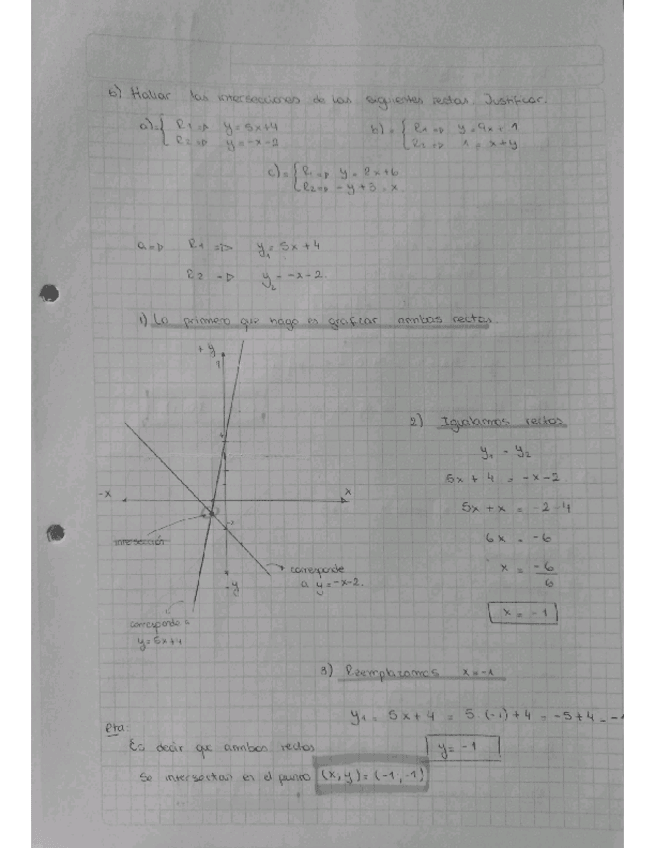 b) Hallar las intersecciones de las siguientes rectas. Justificar.
a) = { R1 => y = 5x+4
R2 => y = -x-2
b) = { R1 => y = 4x+1
R2 => 1 = x+y
c) = { R1 => y = 2x+6
R2 => -y+3 = x
a => R1 => y1 = 5x+4
R2 => y2 = -x-2.
1) Lo primero que hago es graficar ambas rectas.
+y
-x
x
-y
intersección
corresponde
a y = -x-2.
corresponde a
y = 5x+4
2) Igualamos rectas
y1 = y2
5x + 4 = -x-2
5x + x = -2-4
6x = -6
x = -6/6
x = -1
3) Reemplazamos x = -1
y1 = 5x+4 = 5.(-1)+4 = -5+4 = -1
y = -1
Rta:
Es decir que ambas rectas
se intersectan en el punto (x,y) = (-1,-1)